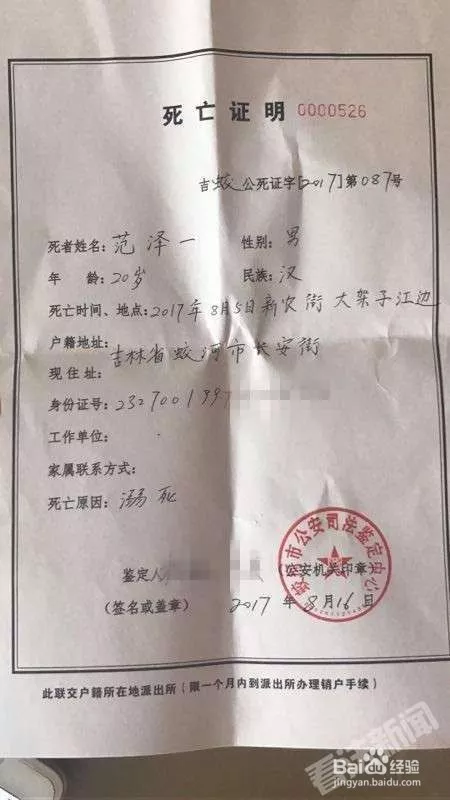 死亡证明 0000526
吉蛟公死证字[2017]第087号
死者姓名：范泽一 性别：男
年 龄：20岁 民族：汉
死亡时间、地点：2017年8月5日新农街 大架子江边
户籍地址：
吉林省蛟河市长安街
现住址：
身份证号：2327001997
工作单位：
家属联系方式：
死亡原因：溺死
鉴定人 （公安机关印章）
蛟河市公安司法鉴定中心
（签名或盖章） 2017年8月16日
此联交户籍所在地派出所（限一个月内到派出所办理销户手续）
新闻
Baidu经验
jingyan.baidu.com